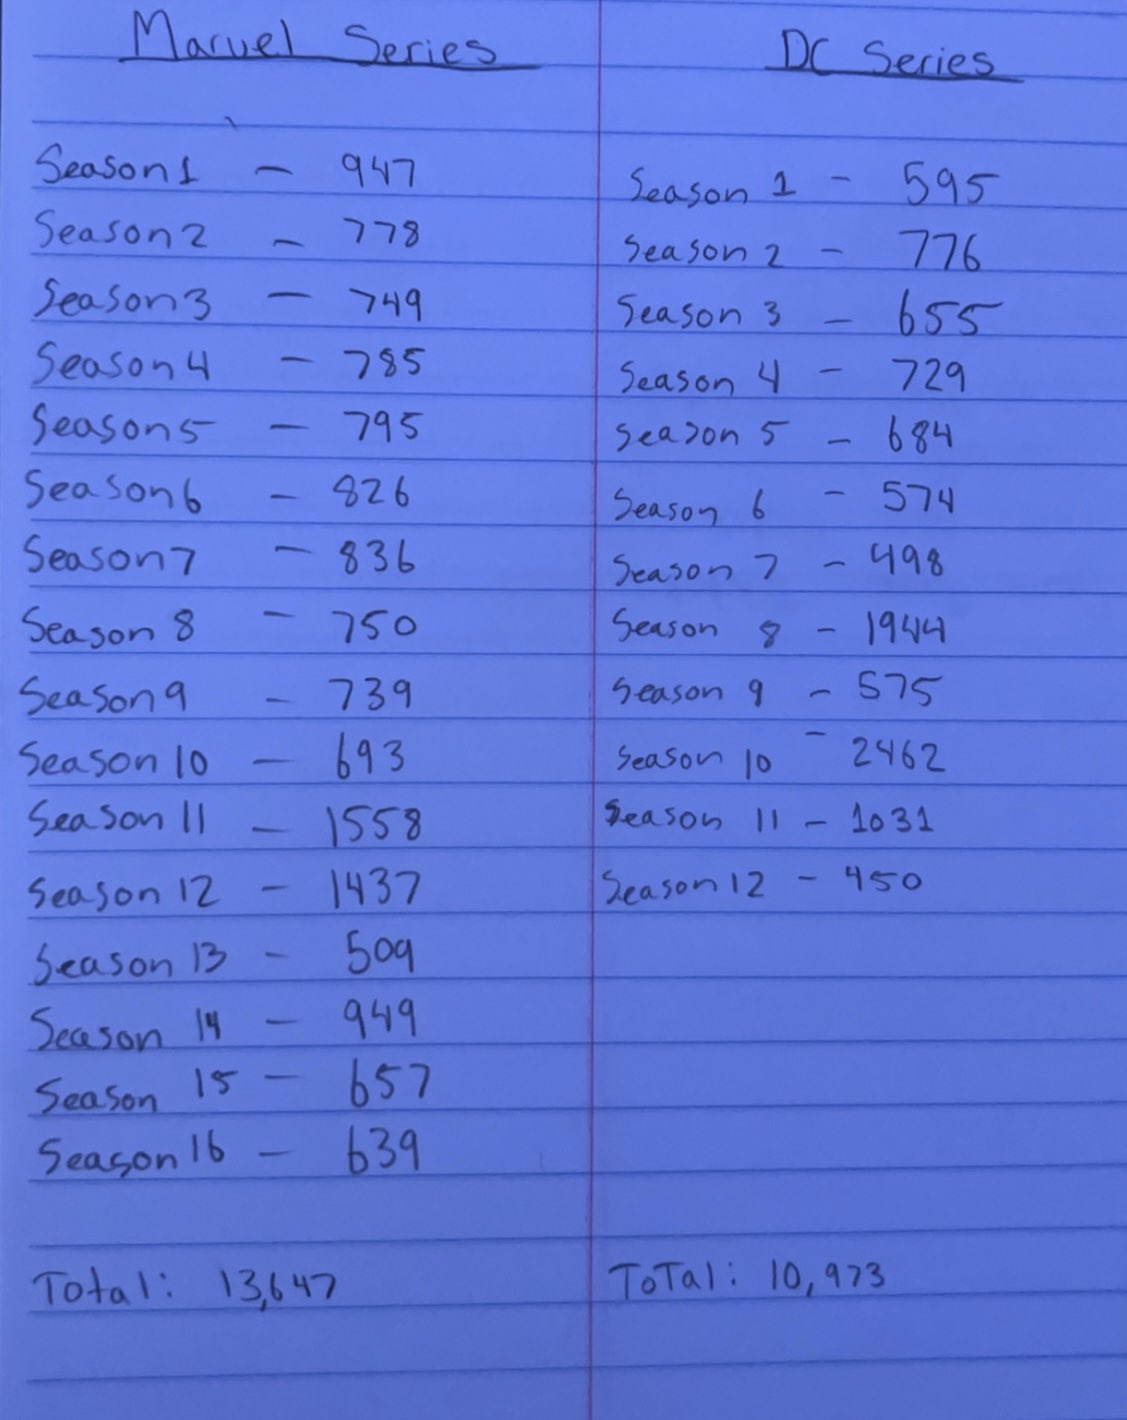 Marvel Series
Season 1 - 947
Season 2 - 778
Season 3 - 749
Season 4 - 785
Season 5 - 795
Season 6 - 826
Season 7 - 836
Season 8 - 750
Season 9 - 739
Season 10 - 693
Season 11 - 1558
Season 12 - 1437
Season 13 - 509
Season 14 - 949
Season 15 - 657
Season 16 - 639
Total: 13,647
DC Series
Season 1 - 595
Season 2 - 776
Season 3 - 655
Season 4 - 729
Season 5 - 684
Season 6 - 574
Season 7 - 498
Season 8 - 1944
Season 9 - 575
Season 10 - 2462
Season 11 - 1031
Season 12 - 450
ToTal: 10,973